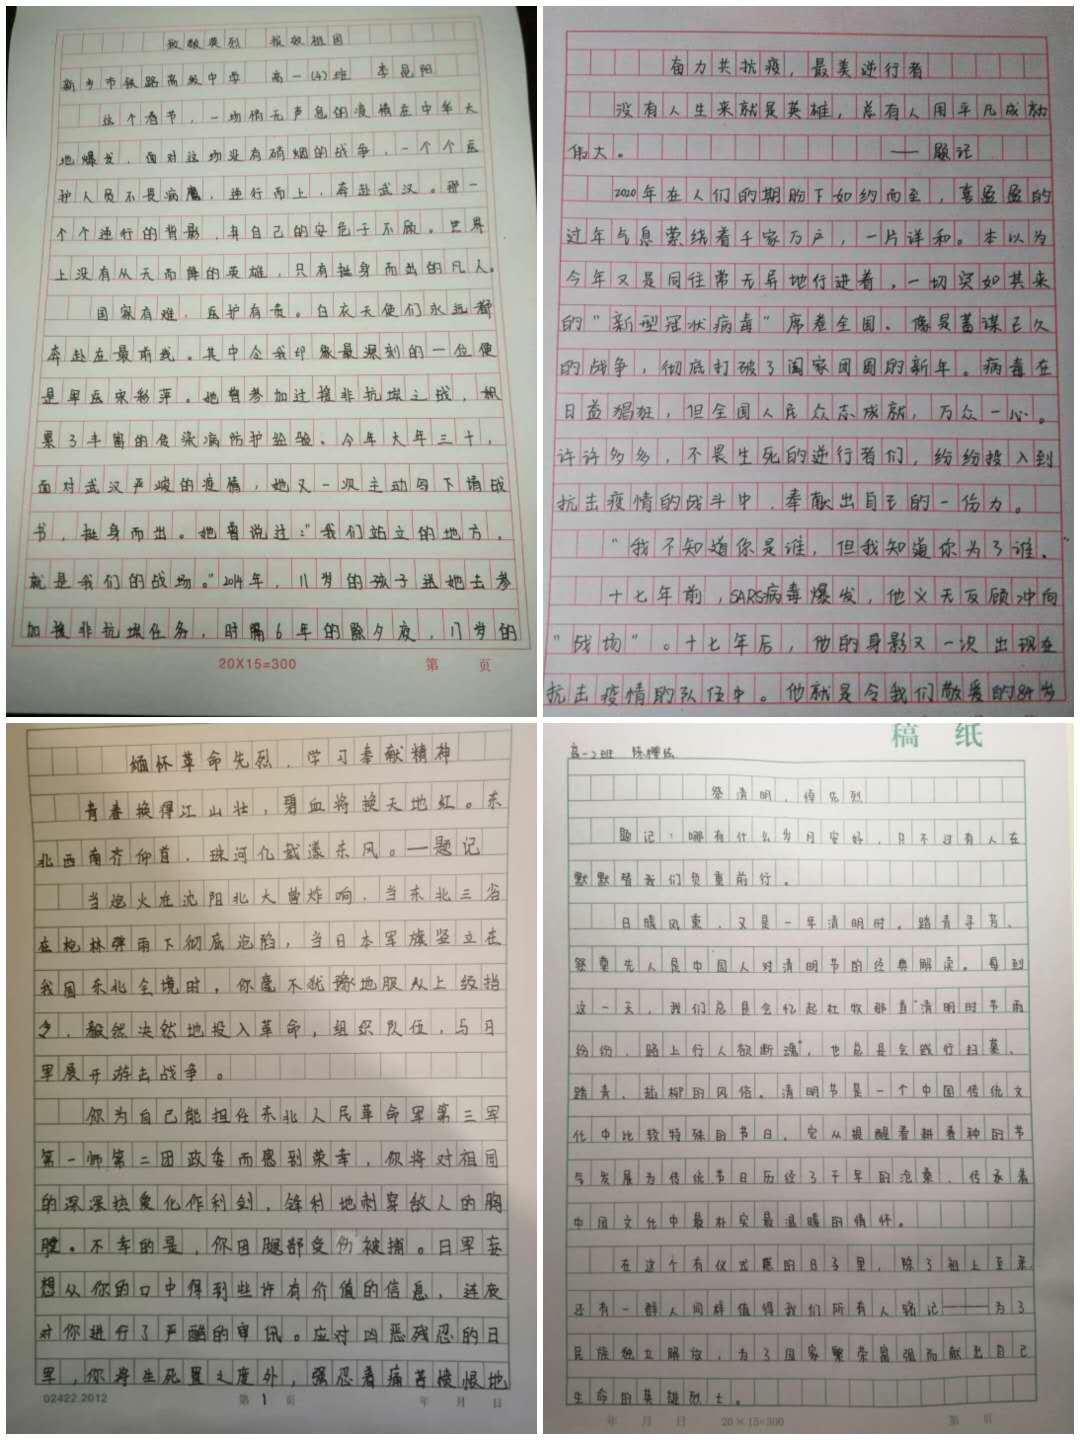 致敬英烈 报效祖国
新乡市铁路高级中学 高一(4)班 李昆阳
这个春节，一场悄无声息的疫情在中华大
地爆发，面对这场没有硝烟的战争，一个个医
护人员不畏病魔，逆行而上，奔赴武汉。那一
个个逆行的背影，弃自己的安危于不顾。世界
上没有从天而降的英雄，只有挺身而出的凡人。
国家有难，医护有责。白衣天使们永远都
奔赴在最前线。其中令我印象最深刻的一位便
是军医宋彩萍。她曾参加过援非抗埃之战，积
累了丰富的传染病防护经验。今年大年三十，
面对武汉严峻的疫情，她又一次主动写下请战
书，挺身而出。她曾说过："我们站立的地方，
就是我们的战场。"2014年，11岁的孩子送她去参
加援非抗埃任务，时隔6年的除夕夜，17岁的
20X15=300 第 页
奋力共抗疫，最美逆行者
没有人生来就是英雄，总有人用平凡成就
伟大。 ——题记
2020年在人们的期盼下如约而至，喜盈盈的
过年气息萦绕着千家万户，一片详和。本以为
今年又是同往常无异地行进着，一切突如其来
的"新型冠状病毒"席卷全国。像是蓄谋已久
的战争，彻底打破了阖家团圆的新年。病毒在
日益猖狂，但全国人民众志成就，万众一心。
许许多多，不畏生死的逆行者们，纷纷投入到
抗击疫情的战斗中，奉献出自己的一份力。
"我不知道你是谁，但我知道你为了谁。
十七年前，SARS病毒爆发，他义无反顾冲向
"战场"。十七年后，他的身影又一次出现在
抗击疫情的队伍中。他就是令我们敬爱的84岁
缅怀革命先烈，学习奉献精神
青春换得江山壮，碧血将换天地红。东
北西南齐仰首，珠河亿载漾东风。—题记
当炮火在沈阳北大营炸响，当东北三省
在枪林弹雨下彻底沦陷，当日本军旗竖立在
我国东北全境时，你毫不犹豫地服从上级指
令，毅然决然地投入革命，组织队伍，与日
军展开游击战争。
你为自己能担任东北人民革命军第三军
第一师第二团政委而感到荣幸，你将对祖国
的深深热爱化作利剑，锋利地刺穿敌人的胸
膛。不幸的是，你因腿部受伤被捕。日军妄
想从你的口中得到些许有价值的信息，连夜
对你进行了严酷的审讯。应对凶恶残忍的日
军，你将生死置之度外，强忍着痛苦愤恨地
02422.2012 第 1 页 年 月 日
稿 纸
高一2班 陈樱
祭清明，悼先烈
题记：哪有什么岁月安好，只不过有人在
默默替我们负重前行。
日暖风熏，又是一年清明时。踏青寻芳、
祭奠先人是中国人对清明节的经典解读。每到
这一天，我们总是会忆起杜牧那首"清明时节雨
纷纷，路上行人欲断魂"，也总是会践行扫墓、
踏青、插柳的风俗。清明节是一个中国传统文
化中比较特殊的节日，它从提醒春耕春种的节
气发展为传统节日历经了千年的沧桑，传承着
中国文化中最朴实最温暖的情怀。
在这个有仪式感的日子里，除了祖上至亲，
还有一群人同样值得我们所有人铭记——为了
民族独立解放，为了国家繁荣富强而献出自己
生命的英雄烈士。
年 月 日 20×15=300 第 页